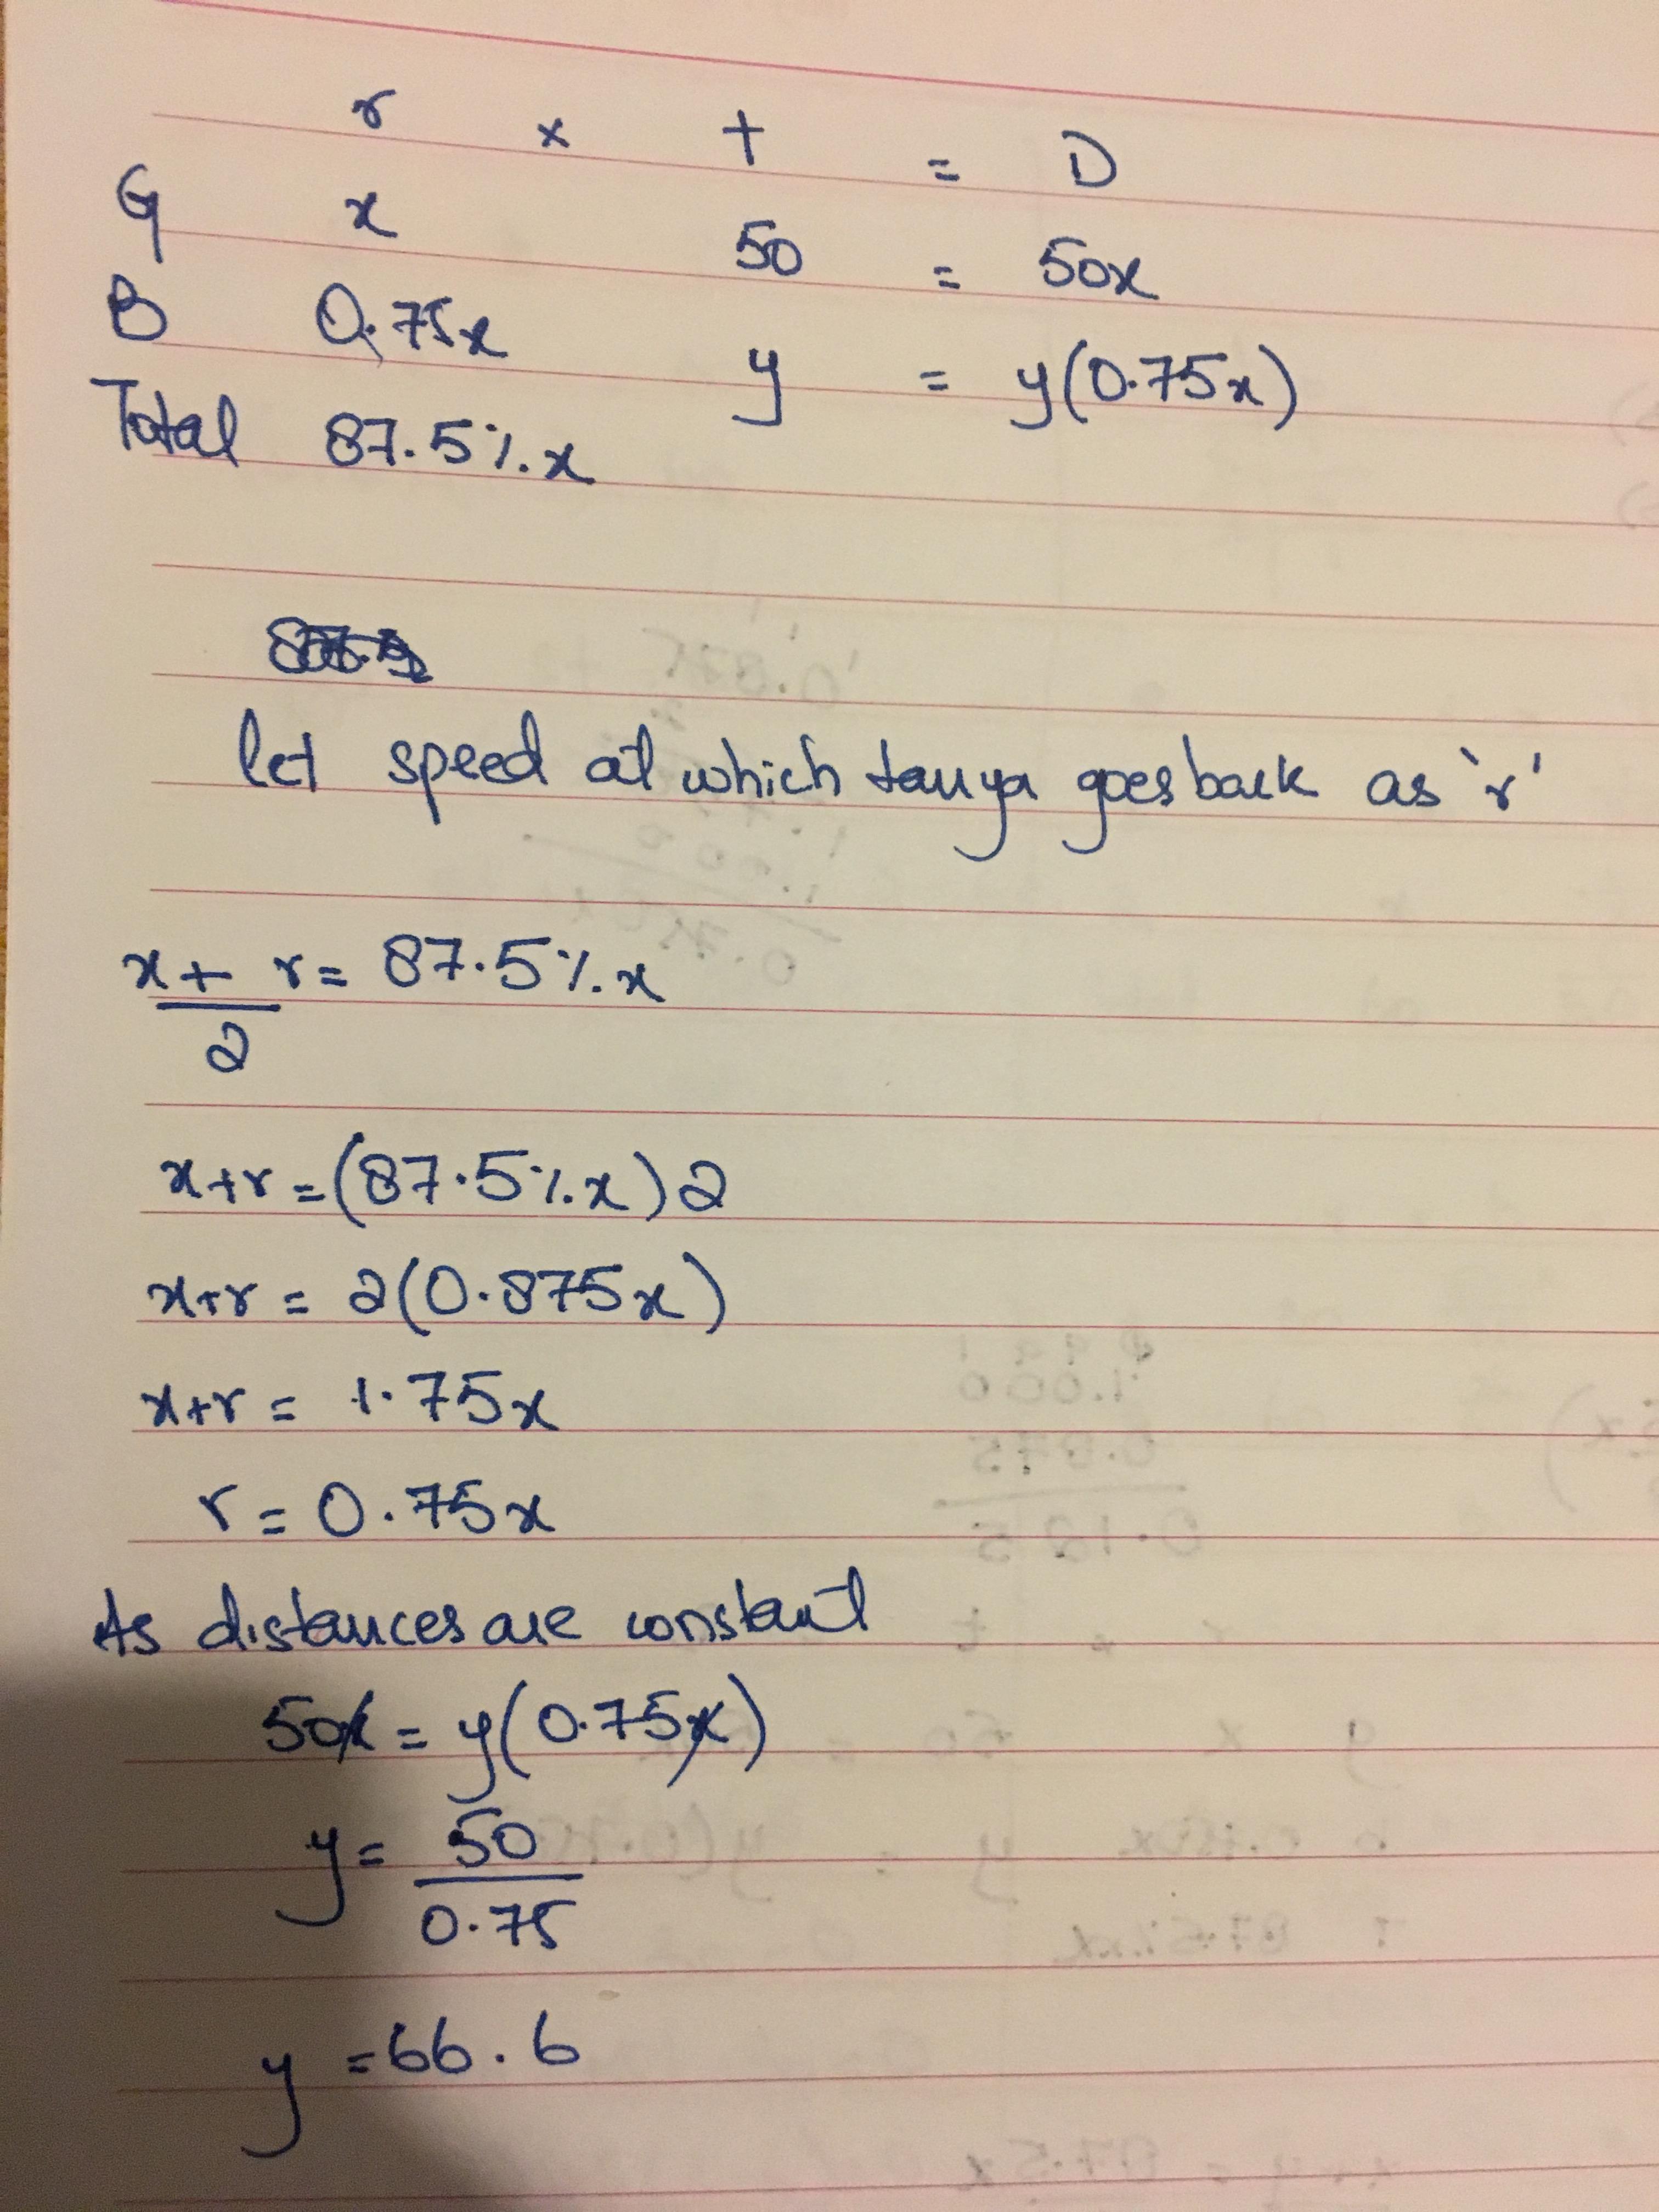 r × t = D
G x 50 = 50x
B 0.75x y = y(0.75x)
Total 87.5%.x
let speed at which tanya goes back as 'r'
x + r = 87.5%.x
2
x+r = (87.5%.x)2
x+r = 2(0.875x)
x+r = 1.75x
r = 0.75x
As distances are constant
50x = y(0.75x)
y = 50
0.75
y = 66.6